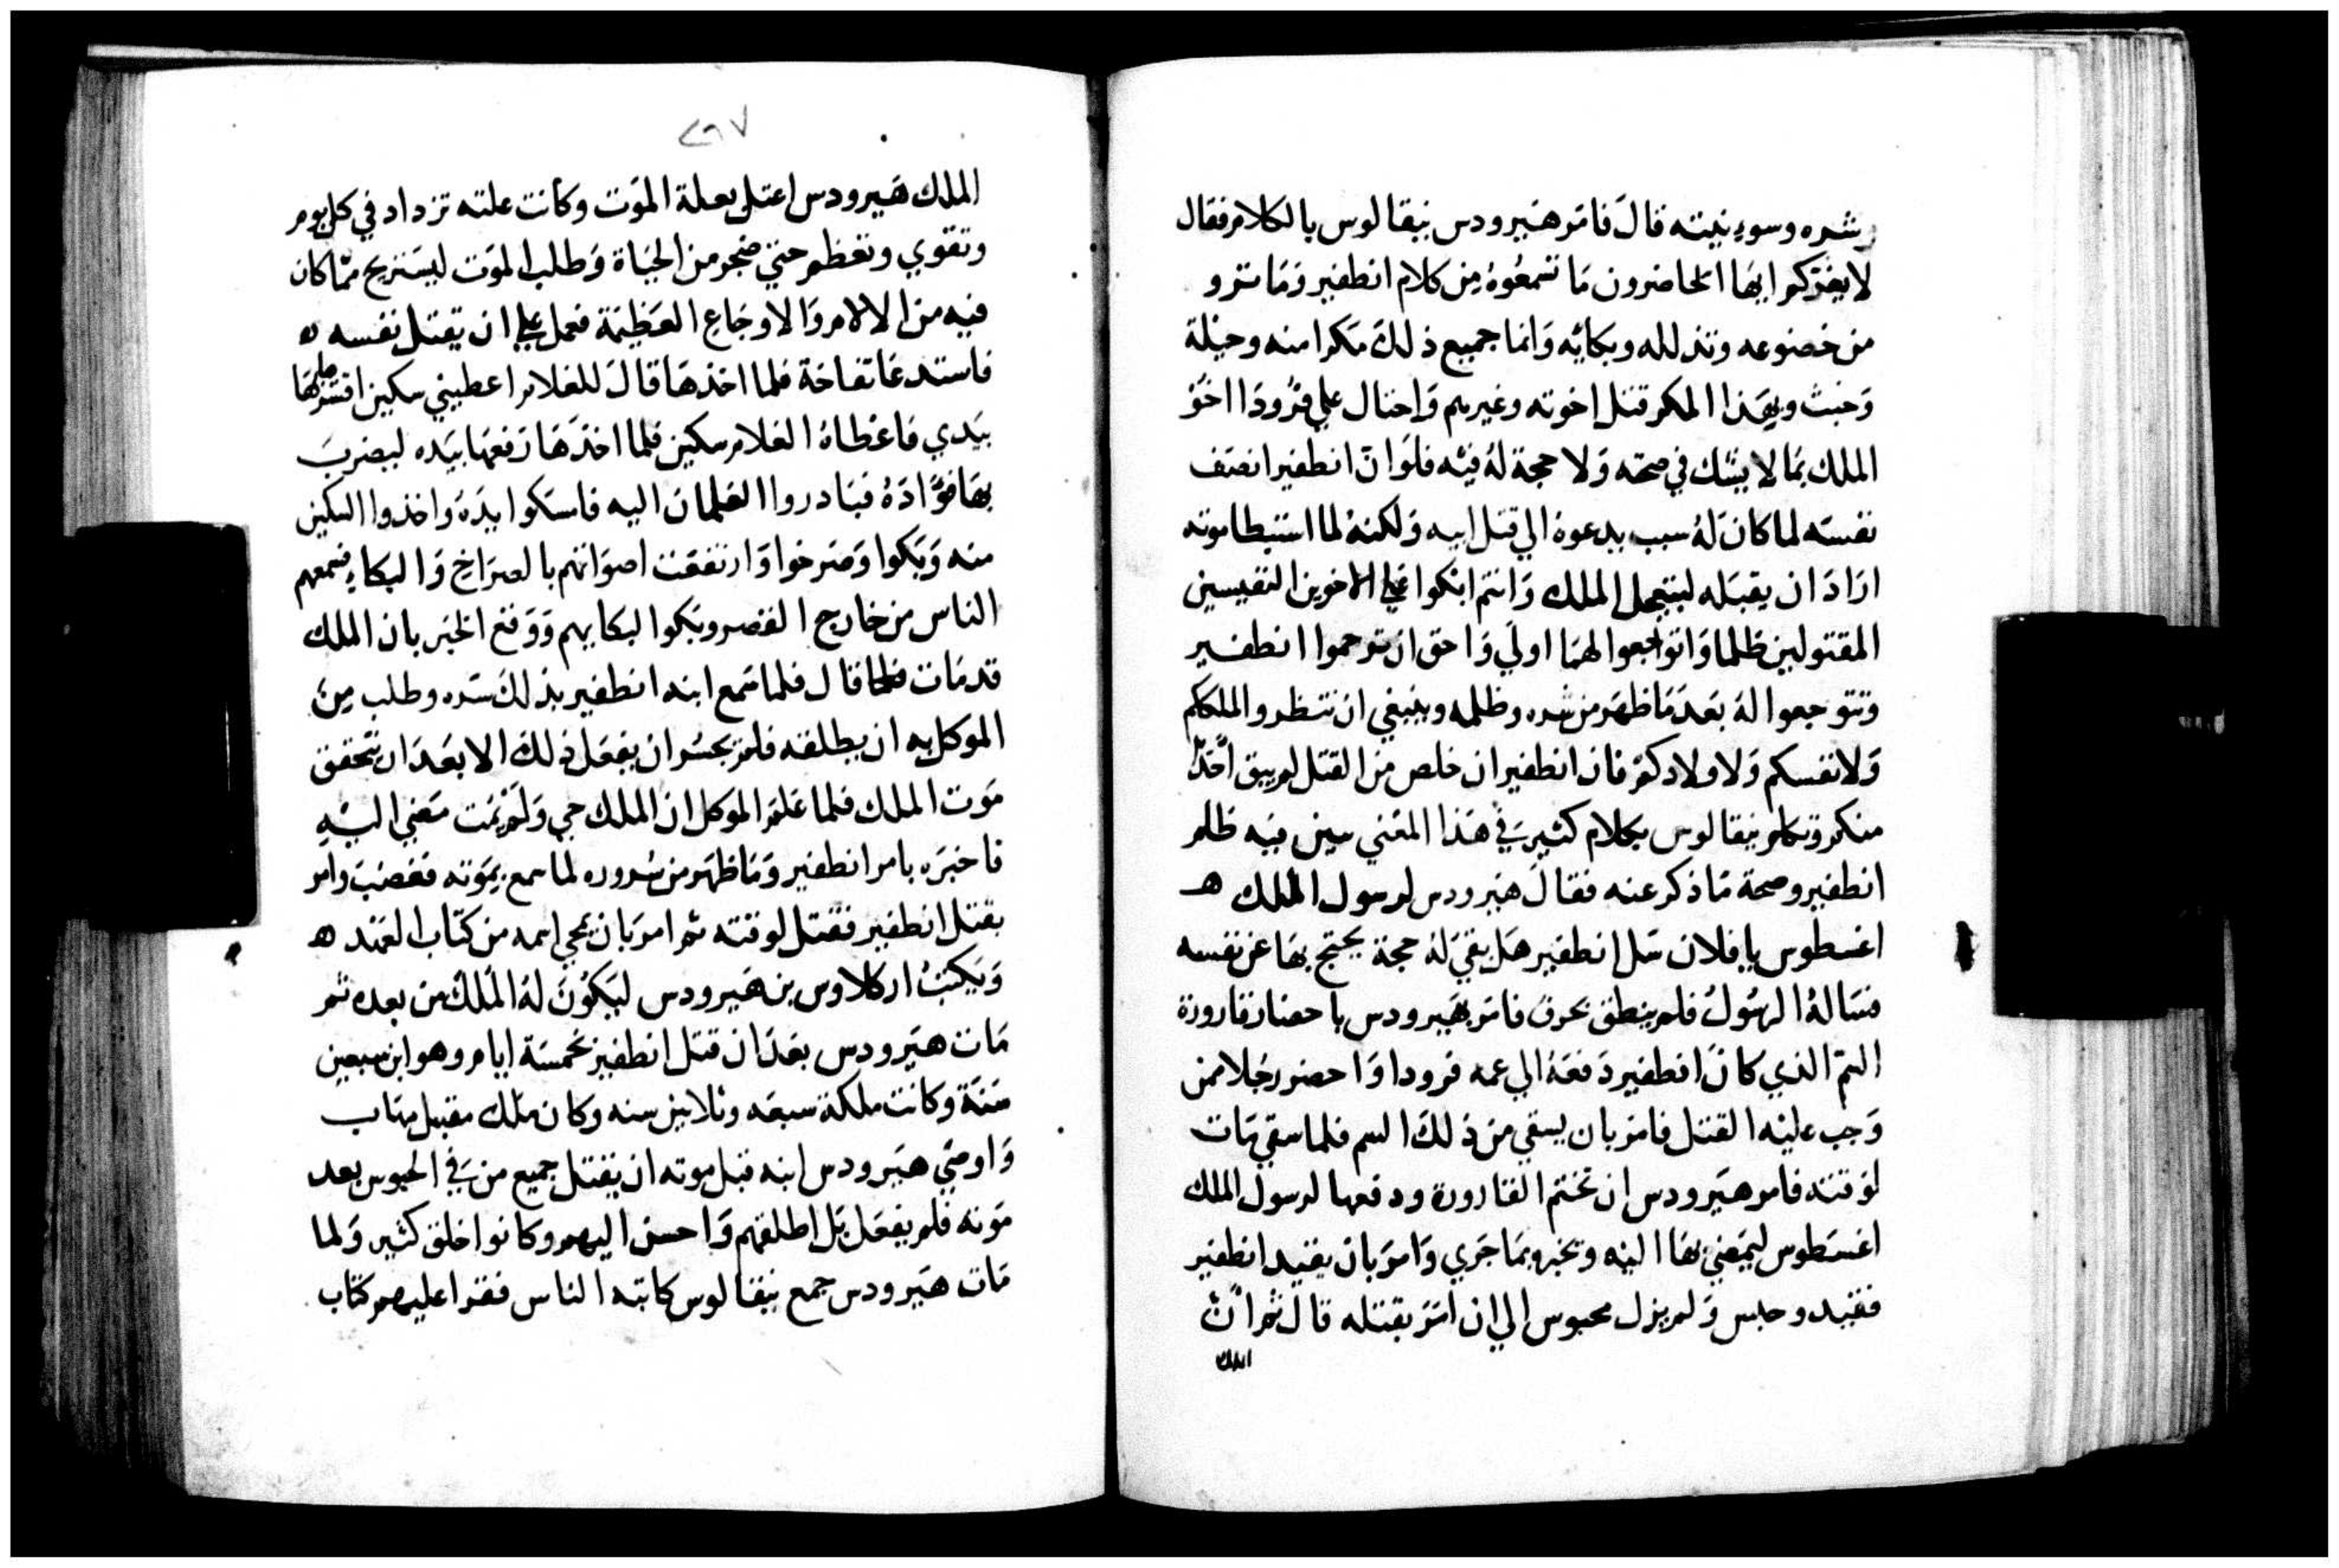 وشره وسوء نيته قال فامر هيرودس نيقالوس بالكلام فقال
لا يغركم ايها الحاضرون ما تسمعوه من كلام انطفير وما ترو
من خضوعه وتذلله وبكايه وانما جميع ذلك مكرا منه وحيلة
وخبث وبهذا المكر قتل اخوته وغيرهم واحتال علي فرودا اخو
الملك بما لا يشك في صحته ولا حجة له فيه فلو ان انطفير انصف
نفسه لما كان له سبب يدعوه الي قتل ابيه ولكنه لما استبطا موته
اراد ان يقتله ليتعجل الملك وانتم ابكوا علي الاخوين النفيسين
المقتولين ظلما وتوجعوا لهما اولي واحق ان ترحموا انطفير
وتتوجعوا له بعد ما ظهر من شره وظلمه وينبغي ان تنظروا لملككم
ولانفسكم ولاولادكم فان انطفير ان خلص من القتل لم يبق احدا
منكم وتكلم نيقالوس بكلام كثير في هذا المعني يبين فيه ظلم
انطفير وصحة ما ذكر عنه فقال هيرودس لرسول الملك ه
اغسطوس يا فلان سل انطفير هل بقي له حجة يحتج بها عن نفسه
فساله الرسول فلم ينطق بحرف فامر هيرودس باحضار قارورة
السم الذي كان انطفير دفعه الي عمه فرودا واحضر رجلا ممن
وجب عليه القتل فامر بان يسقي من ذلك السم فلما سقي مات
لوقته فامر هيرودس ان تختم القارورة ودفعها لرسول الملك
اغسطوس ليمضي بها اليه ويخبره بما جري وامر بان يقيد انطفير
فقيد وحبس ولم يزل محبوس الي ان امر بقتله قال ثم ان
الملك
٢٩٧
الملك هيرودس اعتل بعلة الموت وكانت علته تزداد في كل يوم
وتقوي وتعظم حتي ضجر من الحياة وطلب الموت ليستريح مما كان
فيه من الالام والاوجاع العظيمة فعمل علي ان يقتل نفسه ه
فاستدعا تفاحة فلما اخذها قال للغلام اعطيني سكين اقشرها
بيدي فاعطاه الغلام سكين فلما اخذها رفعها بيده ليضرب
بها فؤاده فبادروا الغلمان اليه فامسكوا يده واخذوا السكين
منه وبكوا وصرخوا وارتفعت اصواتهم بالصراخ والبكاء فسمعهم
الناس من خارج القصر وبكوا لبكايهم ووقع الخبر بان الملك
قد مات قال فلما سمع ابنه انطفير بذلك سره وطلب من
الموكل به ان يطلقه فلم يجسر ان يفعل ذلك الا بعد ان يتحقق
موت الملك فلما علم الموكل ان الملك حي ولم يمت مضي اليه
فاخبره بامر انطفير وما ظهر من سروره لما سمع بموته فغضب وامر
بقتل انطفير فقتل لوقته ثم امر بان يمحي اسمه من كتاب العهد ه
ويكتب اركلاوس بن هيرودس ليكون له الملك من بعده ثم
مات هيرودس بعد ان قتل انطفير بخمسة ايام وهو ابن سبعين
سنة وكانت ملكة سبعه وثلاثين سنه وكان ملك مقبل مهاب
واوصي هيرودس ابنه قبل موته ان يقتل جميع من في الحبوس بعد
موته فلم يفعل بل اطلقهم واحسن اليهم وكانوا خلق كثير ولما
مات هيرودس جمع نيقالوس كاتبه الناس فقرا عليهم كتاب